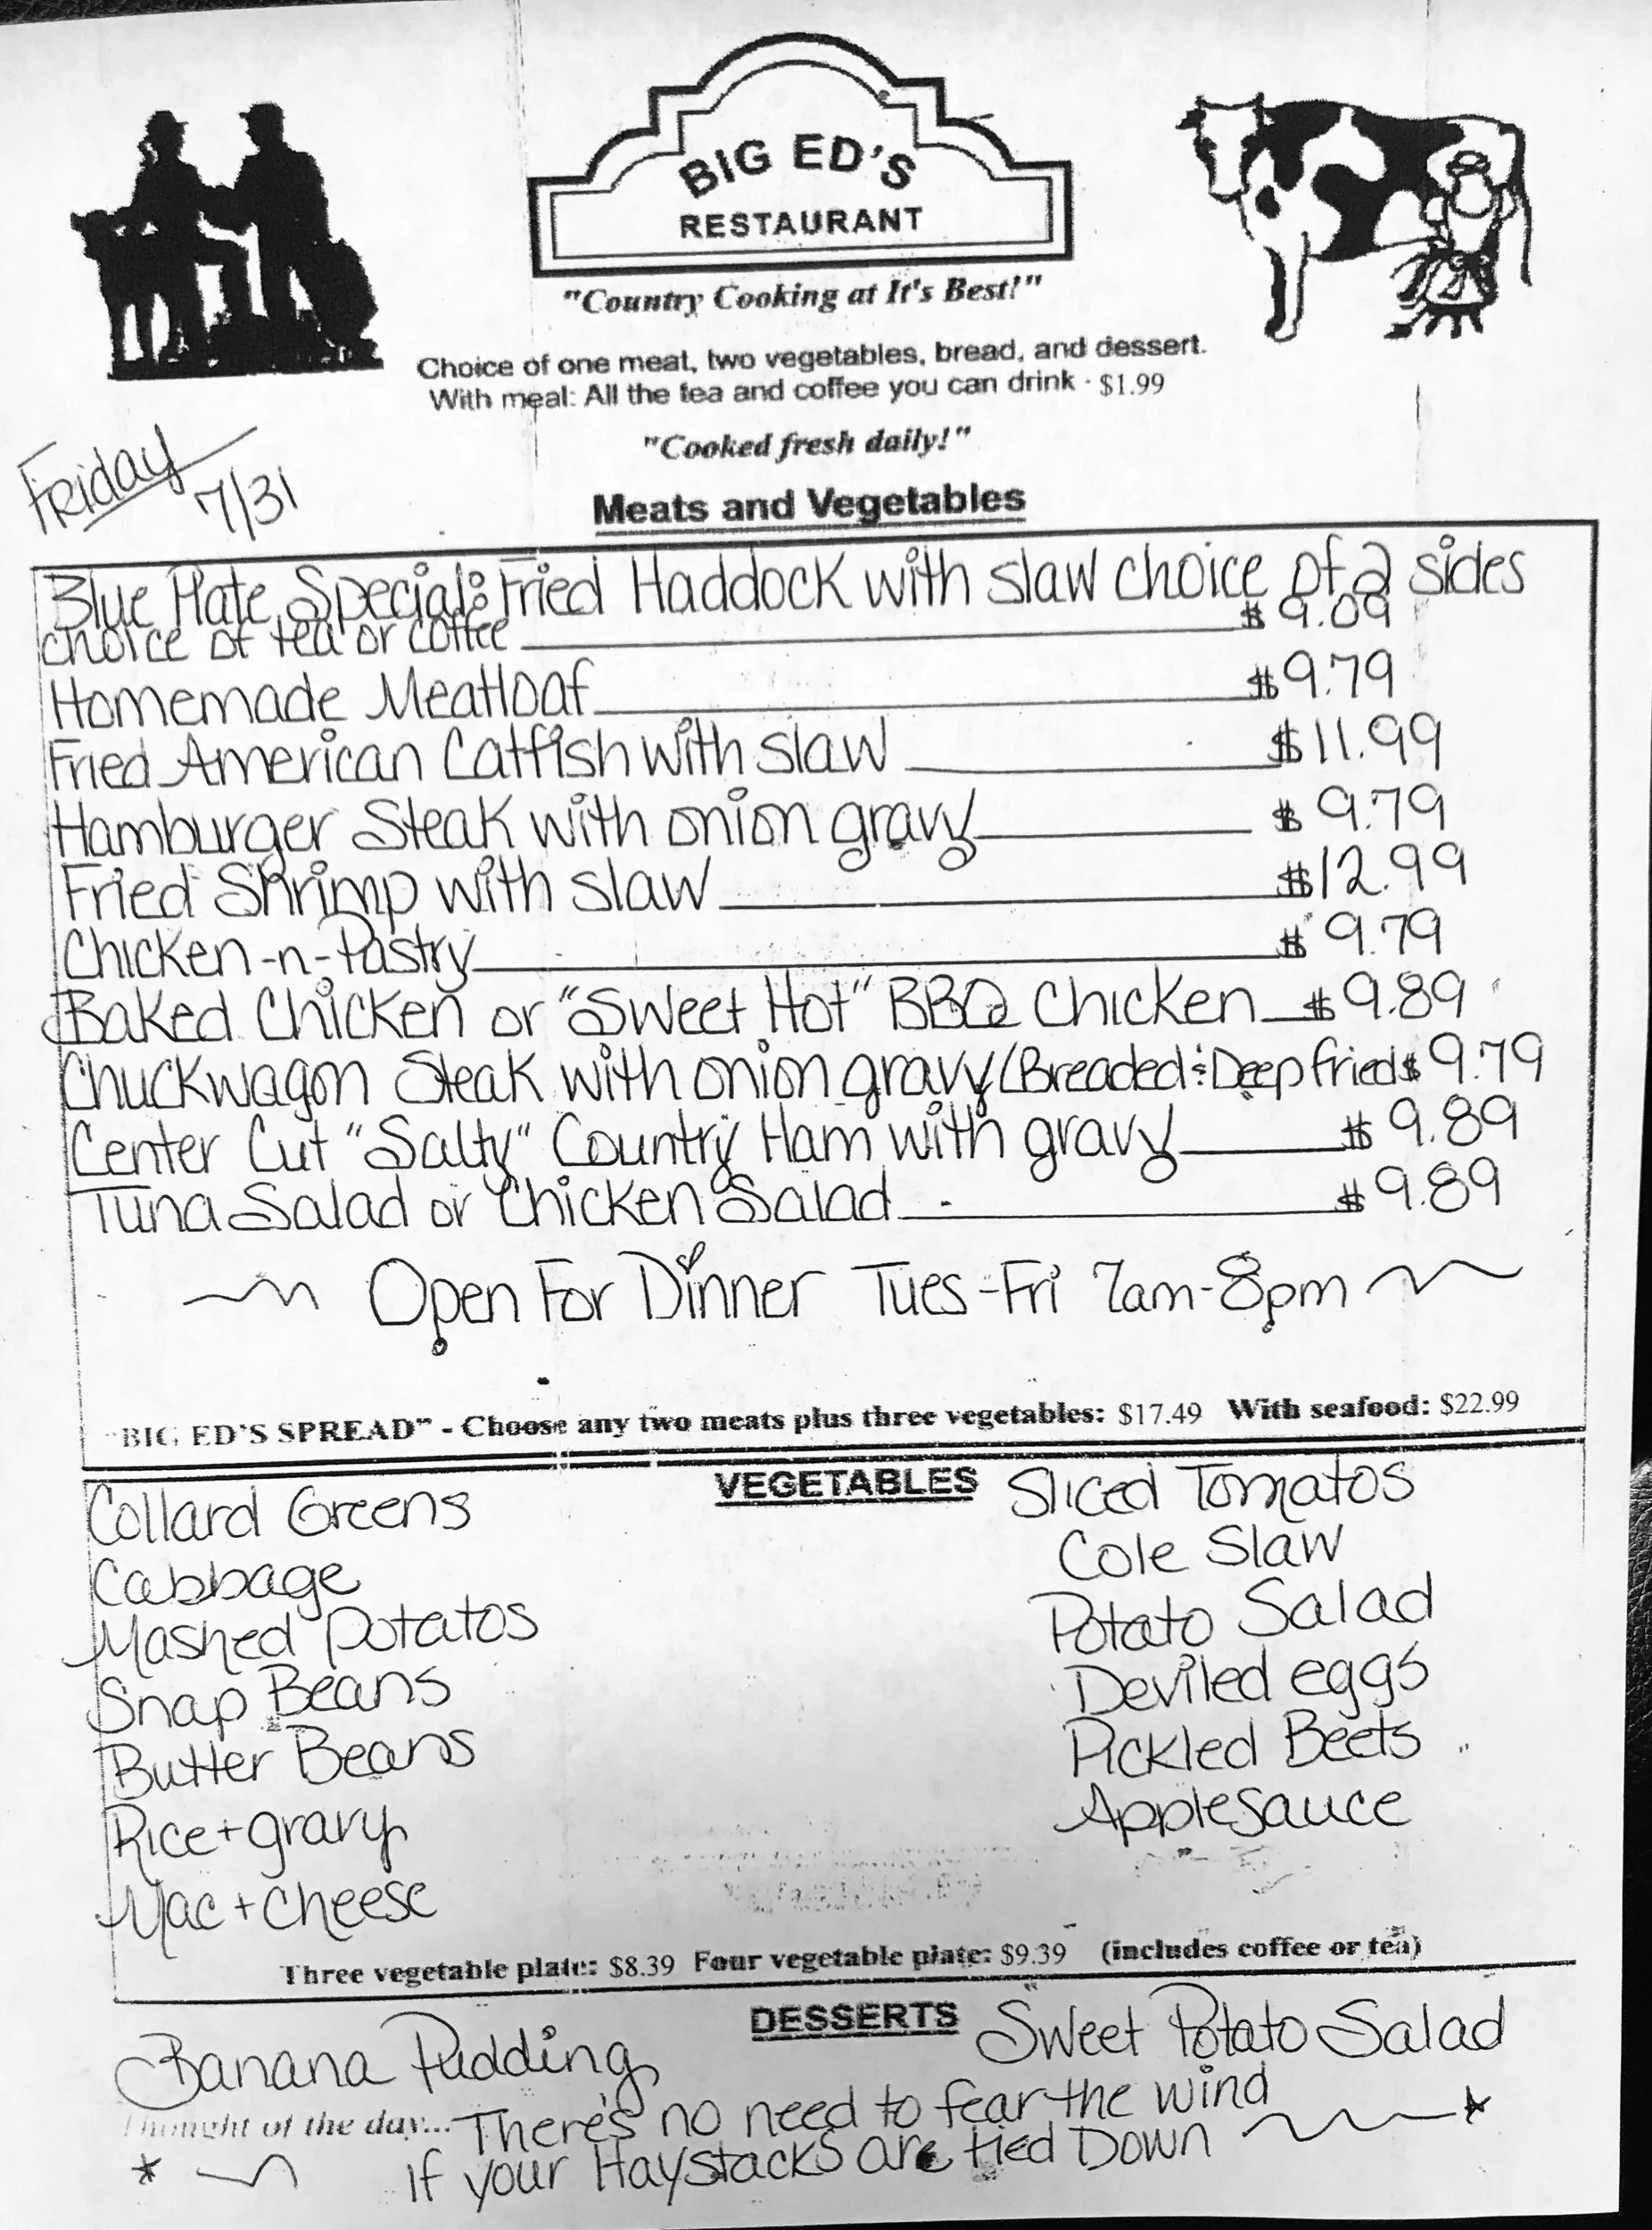 BIG ED'S
RESTAURANT
"Country Cooking at It's Best!"
Choice of one meat, two vegetables, bread, and dessert.
With meal: All the tea and coffee you can drink · $1.99
"Cooked fresh daily!"
Friday
7/31
Meats and Vegetables
Blue Plate Special: Fried Haddock with slaw choice of 2 sides
choice of tea or coffee $9.09
Homemade Meatloaf $9.79
Fried American Catfish with slaw $11.99
Hamburger Steak with onion gravy $9.79
Fried Shrimp with slaw $12.99
Chicken-n-Pastry $9.79
Baked Chicken or "Sweet Hot" BBQ Chicken $9.89
Chuckwagon Steak with onion gravy (Breaded & Deep fried $9.79
Center Cut "Salty" Country Ham with gravy $9.89
Tuna Salad or Chicken Salad $9.89
Open For Dinner Tues-Fri 7am-8pm
"BIG ED'S SPREAD" - Choose any two meats plus three vegetables: $17.49 With seafood: $22.99
VEGETABLES
Collard Greens
Cabbage
Mashed Potatos
Snap Beans
Butter Beans
Rice + gravy
Mac + Cheese
Sliced Tomatos
Cole Slaw
Potato Salad
Deviled eggs
Pickled Beets
Applesauce
Three vegetable plate: $8.39 Four vegetable plate: $9.39 (includes coffee or tea)
DESSERTS
Banana Pudding
Sweet Potato Salad
Thought of the day... There's no need to fear the wind
if your Haystacks are tied Down